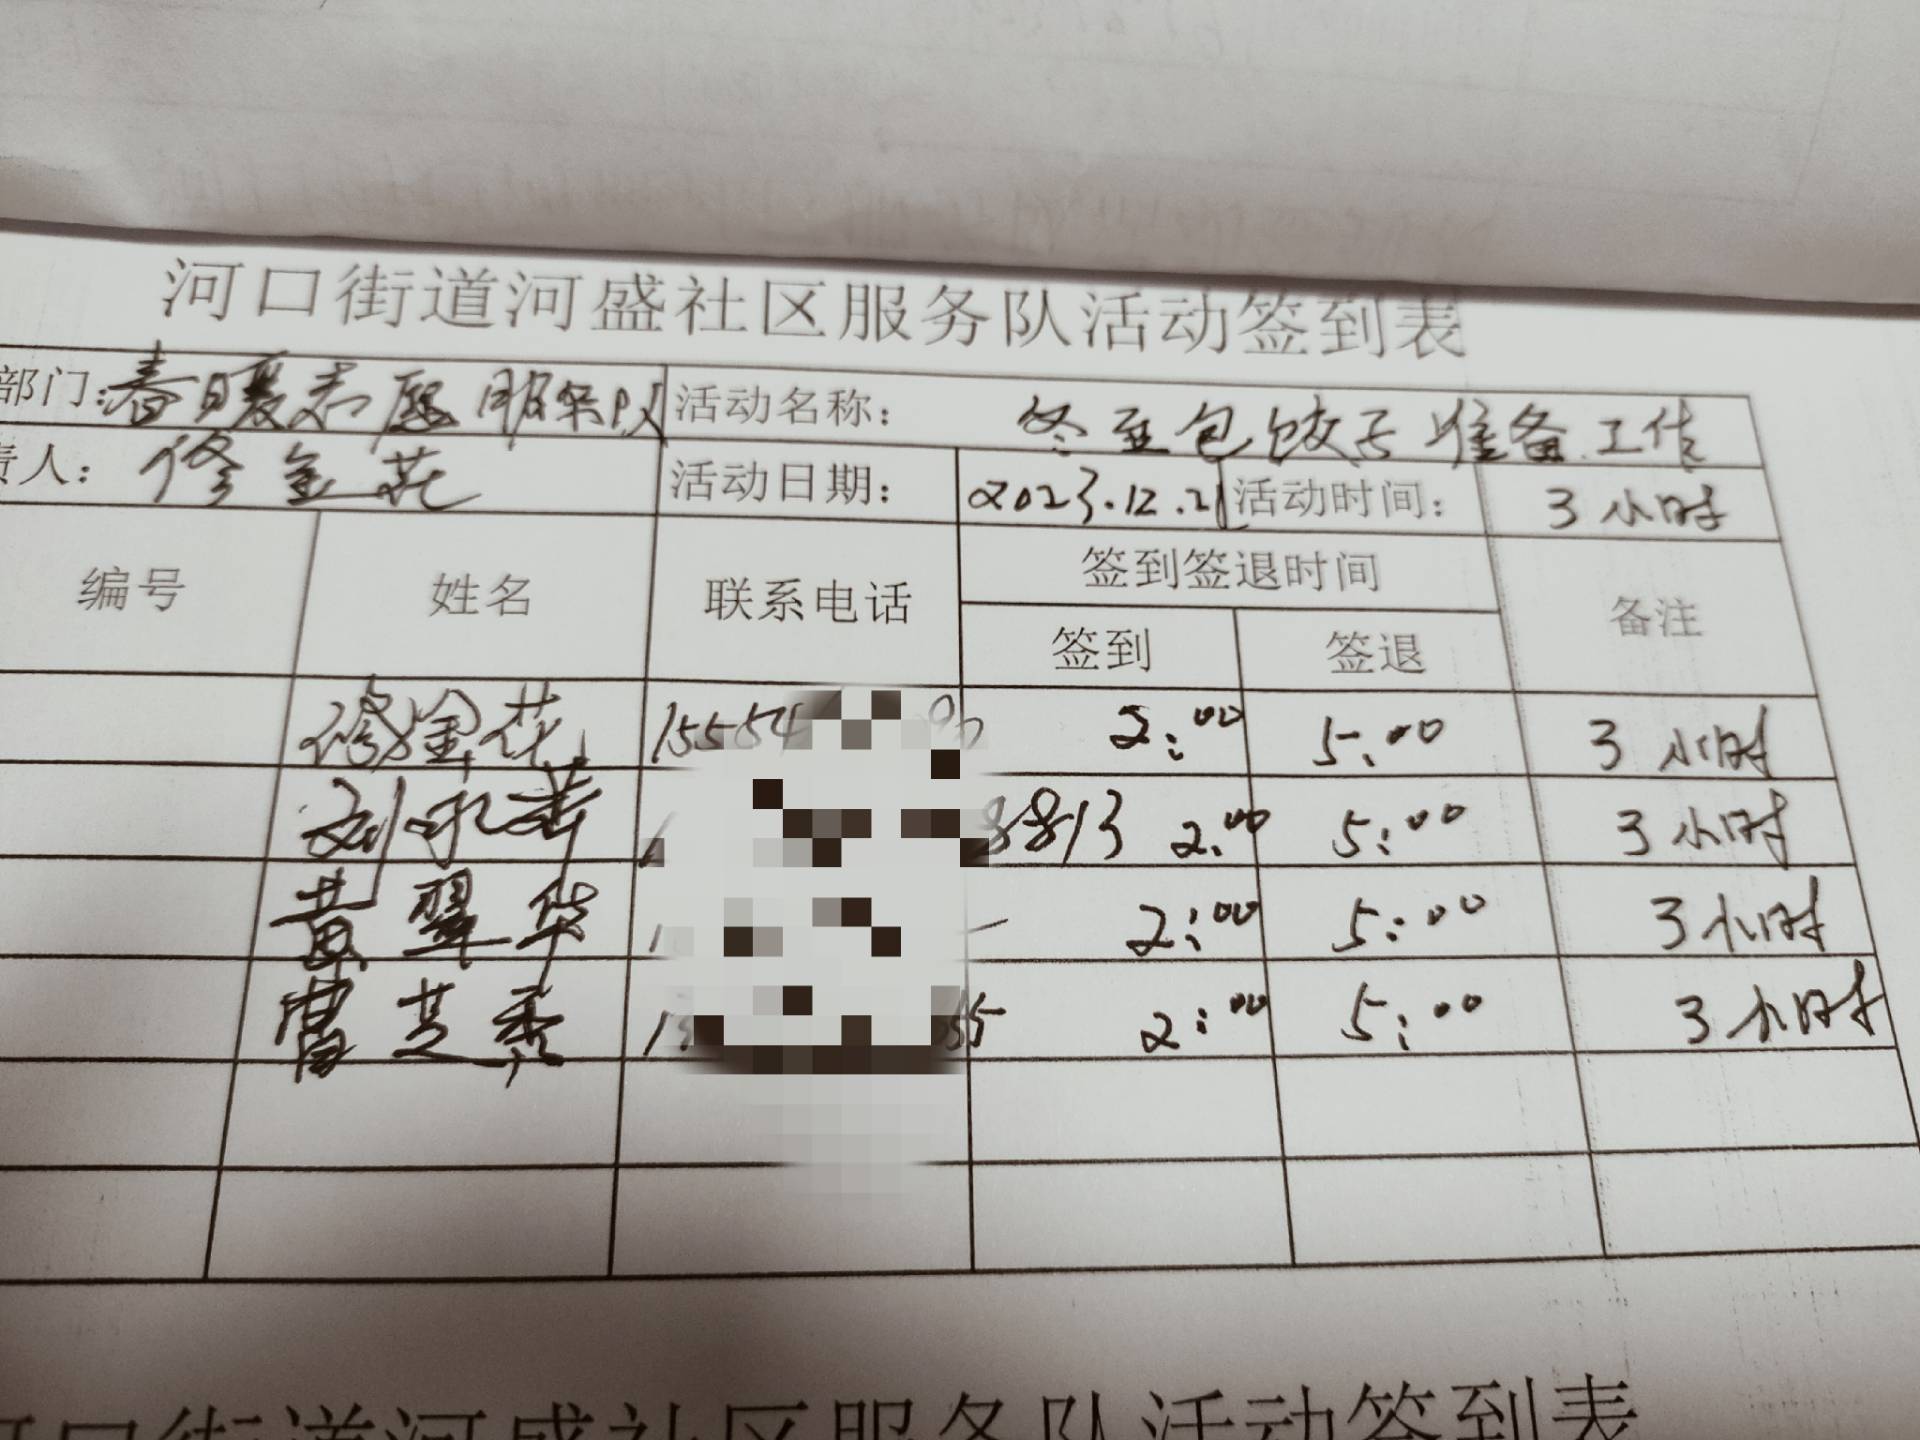 河口街道河盛社区服务队活动签到表
部门：春日暖志愿服务队 活动名称： 冬至包饺子准备工作
责人： 修金花 活动日期： 2023.12.21 活动时间： 3小时
编号 姓名 联系电话 签到签退时间 备注
签到 签退
修金花 15554 2:00 5:00 3小时
刘 8813 2:00 5:00 3小时
黄翠华 1 2:00 5:00 3小时
芝秀 2:00 5:00 3小时
河口街道河盛社区服务队活动签到表